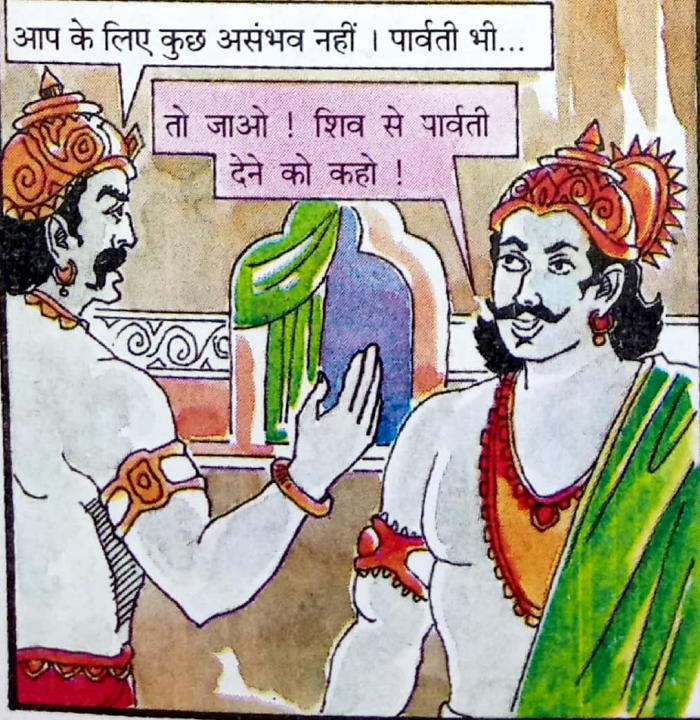 आप के लिए कुछ असंभव नहीं । पार्वती भी...
तो जाओ ! शिव से पार्वती
देने को कहो !